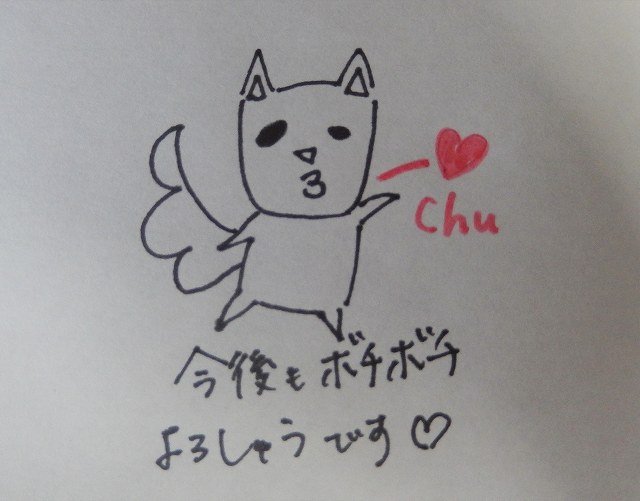 Chu
今後もボチボチ
よろしゅうです♡